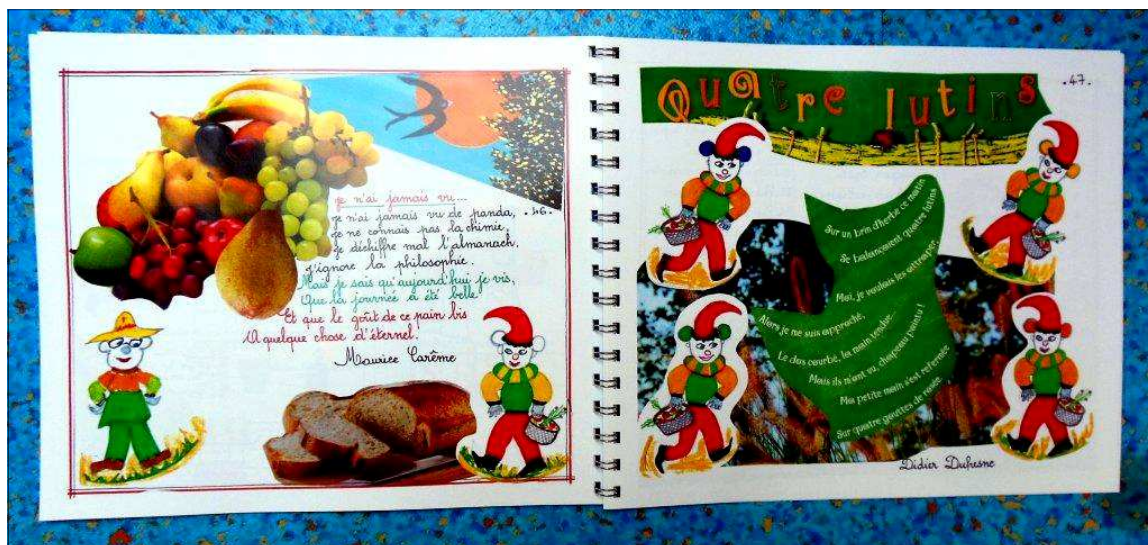 je n'ai jamais vu...
je n'ai jamais vu de panda,
.46.
je ne connais pas la chimie,
je déchiffre mal l'almanach,
J'ignore la philosophie.
Mais je sais qu'aujourd'hui je vis,
Que la journée a été belle
Et que le goût de ce pain bis
A quelque chose d'éternel.
Maurice Carême
Quatre lutins
.47.
Sur un brin d'herbe ce matin
Se balançaient quatre lutins
Moi, je voulais les attraper,
Alors je me suis approché,
Le dos courbé, la main tendue.
Mais ils m'ont vu, chapeau pointu !
Ma petite main s'est refermée
Sur quatre gouttes de rosée.
Didier Dufresne